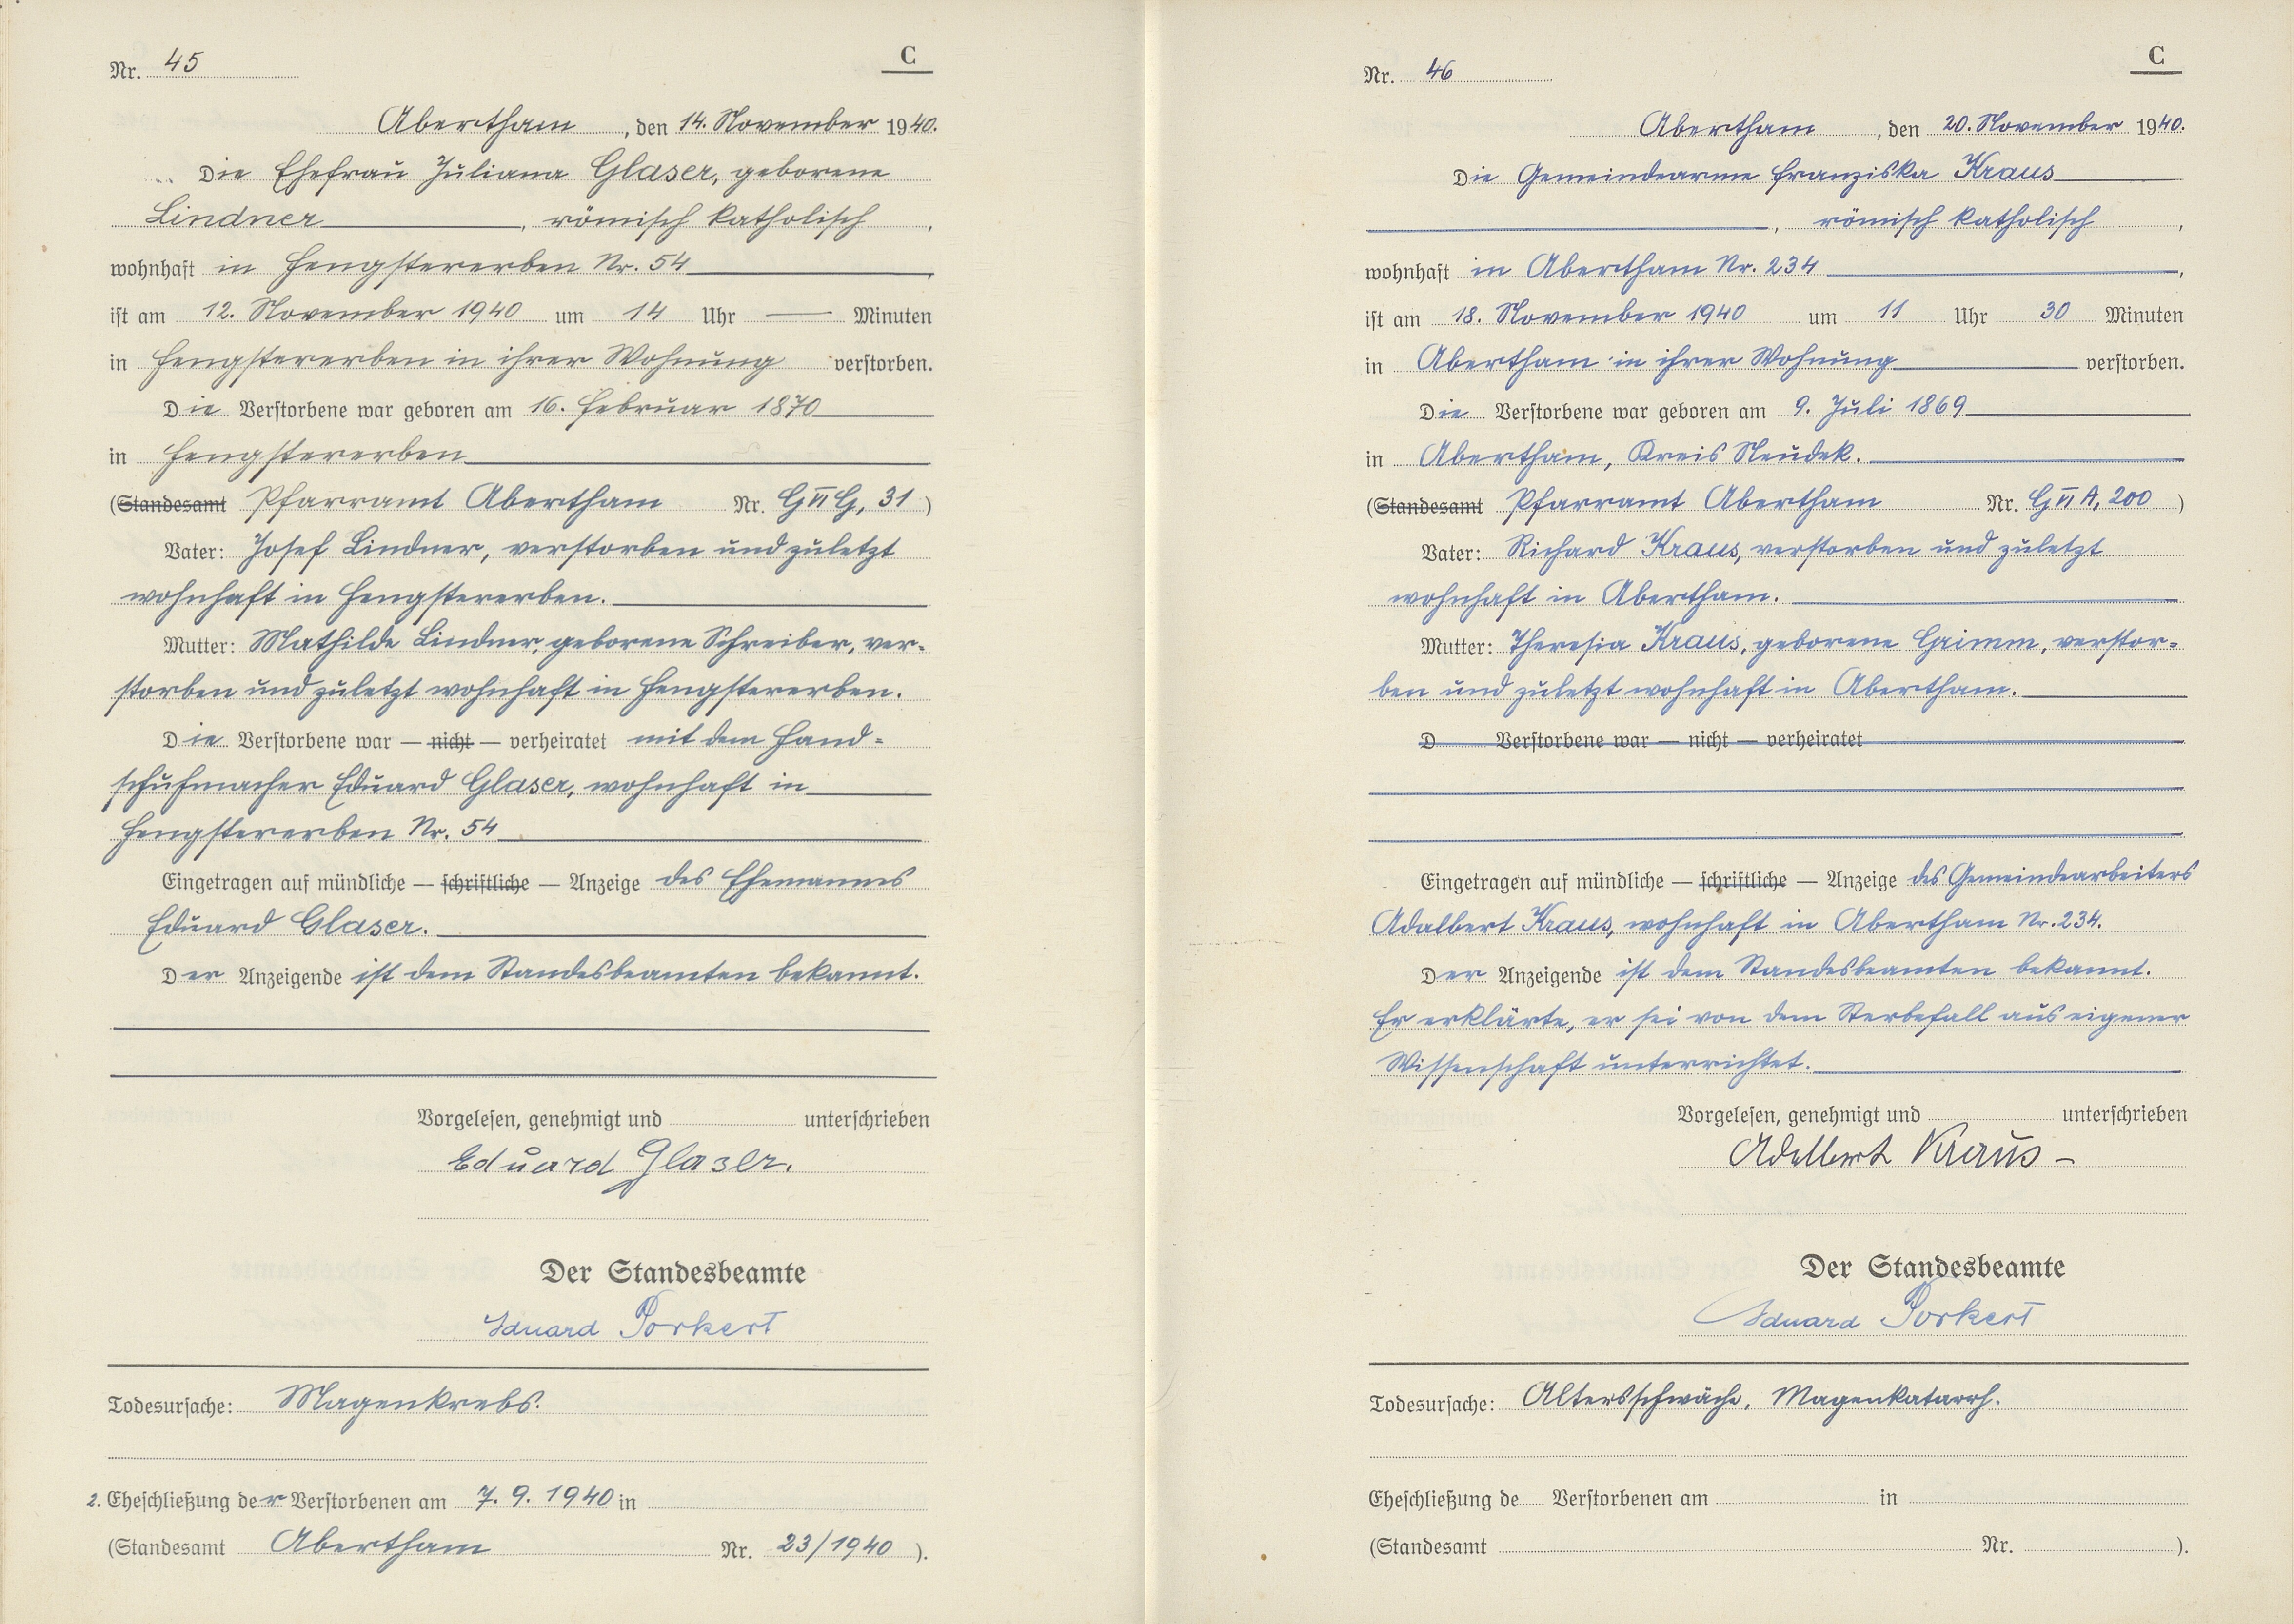 Nr. 45
C
Abertham, den 14. November 1940.
Die Ehefrau Juliana Glaser, geborene
Lindner, römisch katholisch,
wohnhaft in Hengstererben Nr. 54,
ist am 12. November 1940 um 14 Uhr — Minuten
in Hengstererben in ihrer Wohnung verstorben.
Die Verstorbene war geboren am 16. Februar 1870
in Hengstererben
(Standesamt Pfarramt Abertham Nr. G VI G, 31)
Vater: Josef Lindner, verstorben und zuletzt
wohnhaft in Hengstererben.
Mutter: Mathilde Lindner, geborene Schreiber, ver-
storben und zuletzt wohnhaft in Hengstererben.
Die Verstorbene war — nicht — verheiratet mit dem Hand-
schuhmacher Eduard Glaser, wohnhaft in
Hengstererben Nr. 54
Eingetragen auf mündliche — schriftliche — Anzeige des Ehemannes
Eduard Glaser.
Der Anzeigende ist dem Standesbeamten bekannt.
Vorgelesen, genehmigt und unterschrieben
Eduard Glaser.
Der Standesbeamte
Eduard Porkert
Todesursache: Magenkrebs.
2. Eheschließung der Verstorbenen am 7. 9. 1940 in
(Standesamt Abertham Nr. 23/1940).
Nr. 46
C
Abertham, den 20. November 1940.
Die Gemeindearme Franziska Kraus
, römisch katholisch,
wohnhaft in Abertham Nr. 234,
ist am 18. November 1940 um 11 Uhr 30 Minuten
in Abertham in ihrer Wohnung verstorben.
Die Verstorbene war geboren am 9. Juli 1869
in Abertham, Kreis Neudek.
(Standesamt Pfarramt Abertham Nr. G VI A, 200)
Vater: Richard Kraus, verstorben und zuletzt
wohnhaft in Abertham.
Mutter: Theresia Kraus, geborene Grimm, verstor-
ben und zuletzt wohnhaft in Abertham.
D Verstorbene war — nicht — verheiratet
Eingetragen auf mündliche — schriftliche — Anzeige des Gemeindearbeiters
Adalbert Kraus, wohnhaft in Abertham Nr. 234.
Der Anzeigende ist dem Standesbeamten bekannt.
Er erklärte, er sei von dem Sterbefall aus eigener
Wissenschaft unterrichtet.
Vorgelesen, genehmigt und unterschrieben
Adalbert Kraus –
Der Standesbeamte
Eduard Porkert
Todesursache: Altersschwäche, Magenkatarrh.
Eheschließung de Verstorbenen am in
(Standesamt Nr. ).